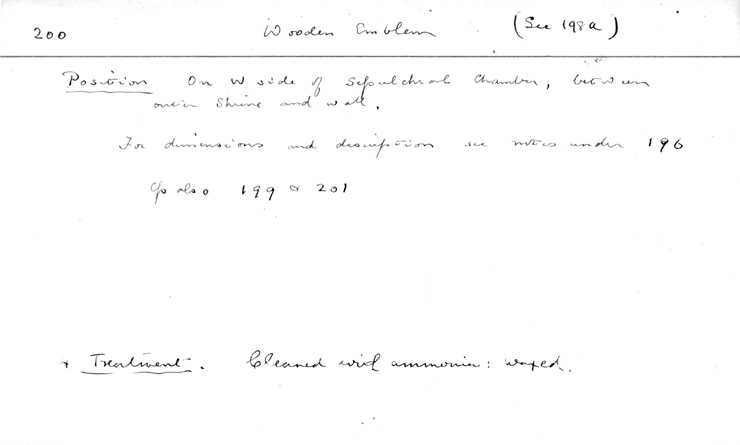 200 Wooden Emblem (See 198a)
Position On W side of Sepulchral Chamber, between
outer Shrine and wall.
For dimensions and description see notes under 196
Cp also 199 & 201
+ Treatment. Cleaned with ammonia: waxed.